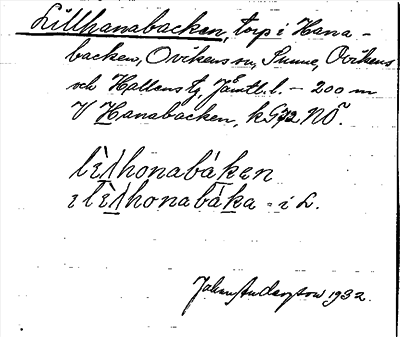 Lillhanabacken, torp i Hana-
backen, Ovikens sn, Sunne, Ovikens
och Hallens tg, Jämtl. l. - 200 m
V Hanabacken, k 572 NÖ.
lìlhonabáken
i lìlhonabáka - i L.
Johan Anderson 1932.